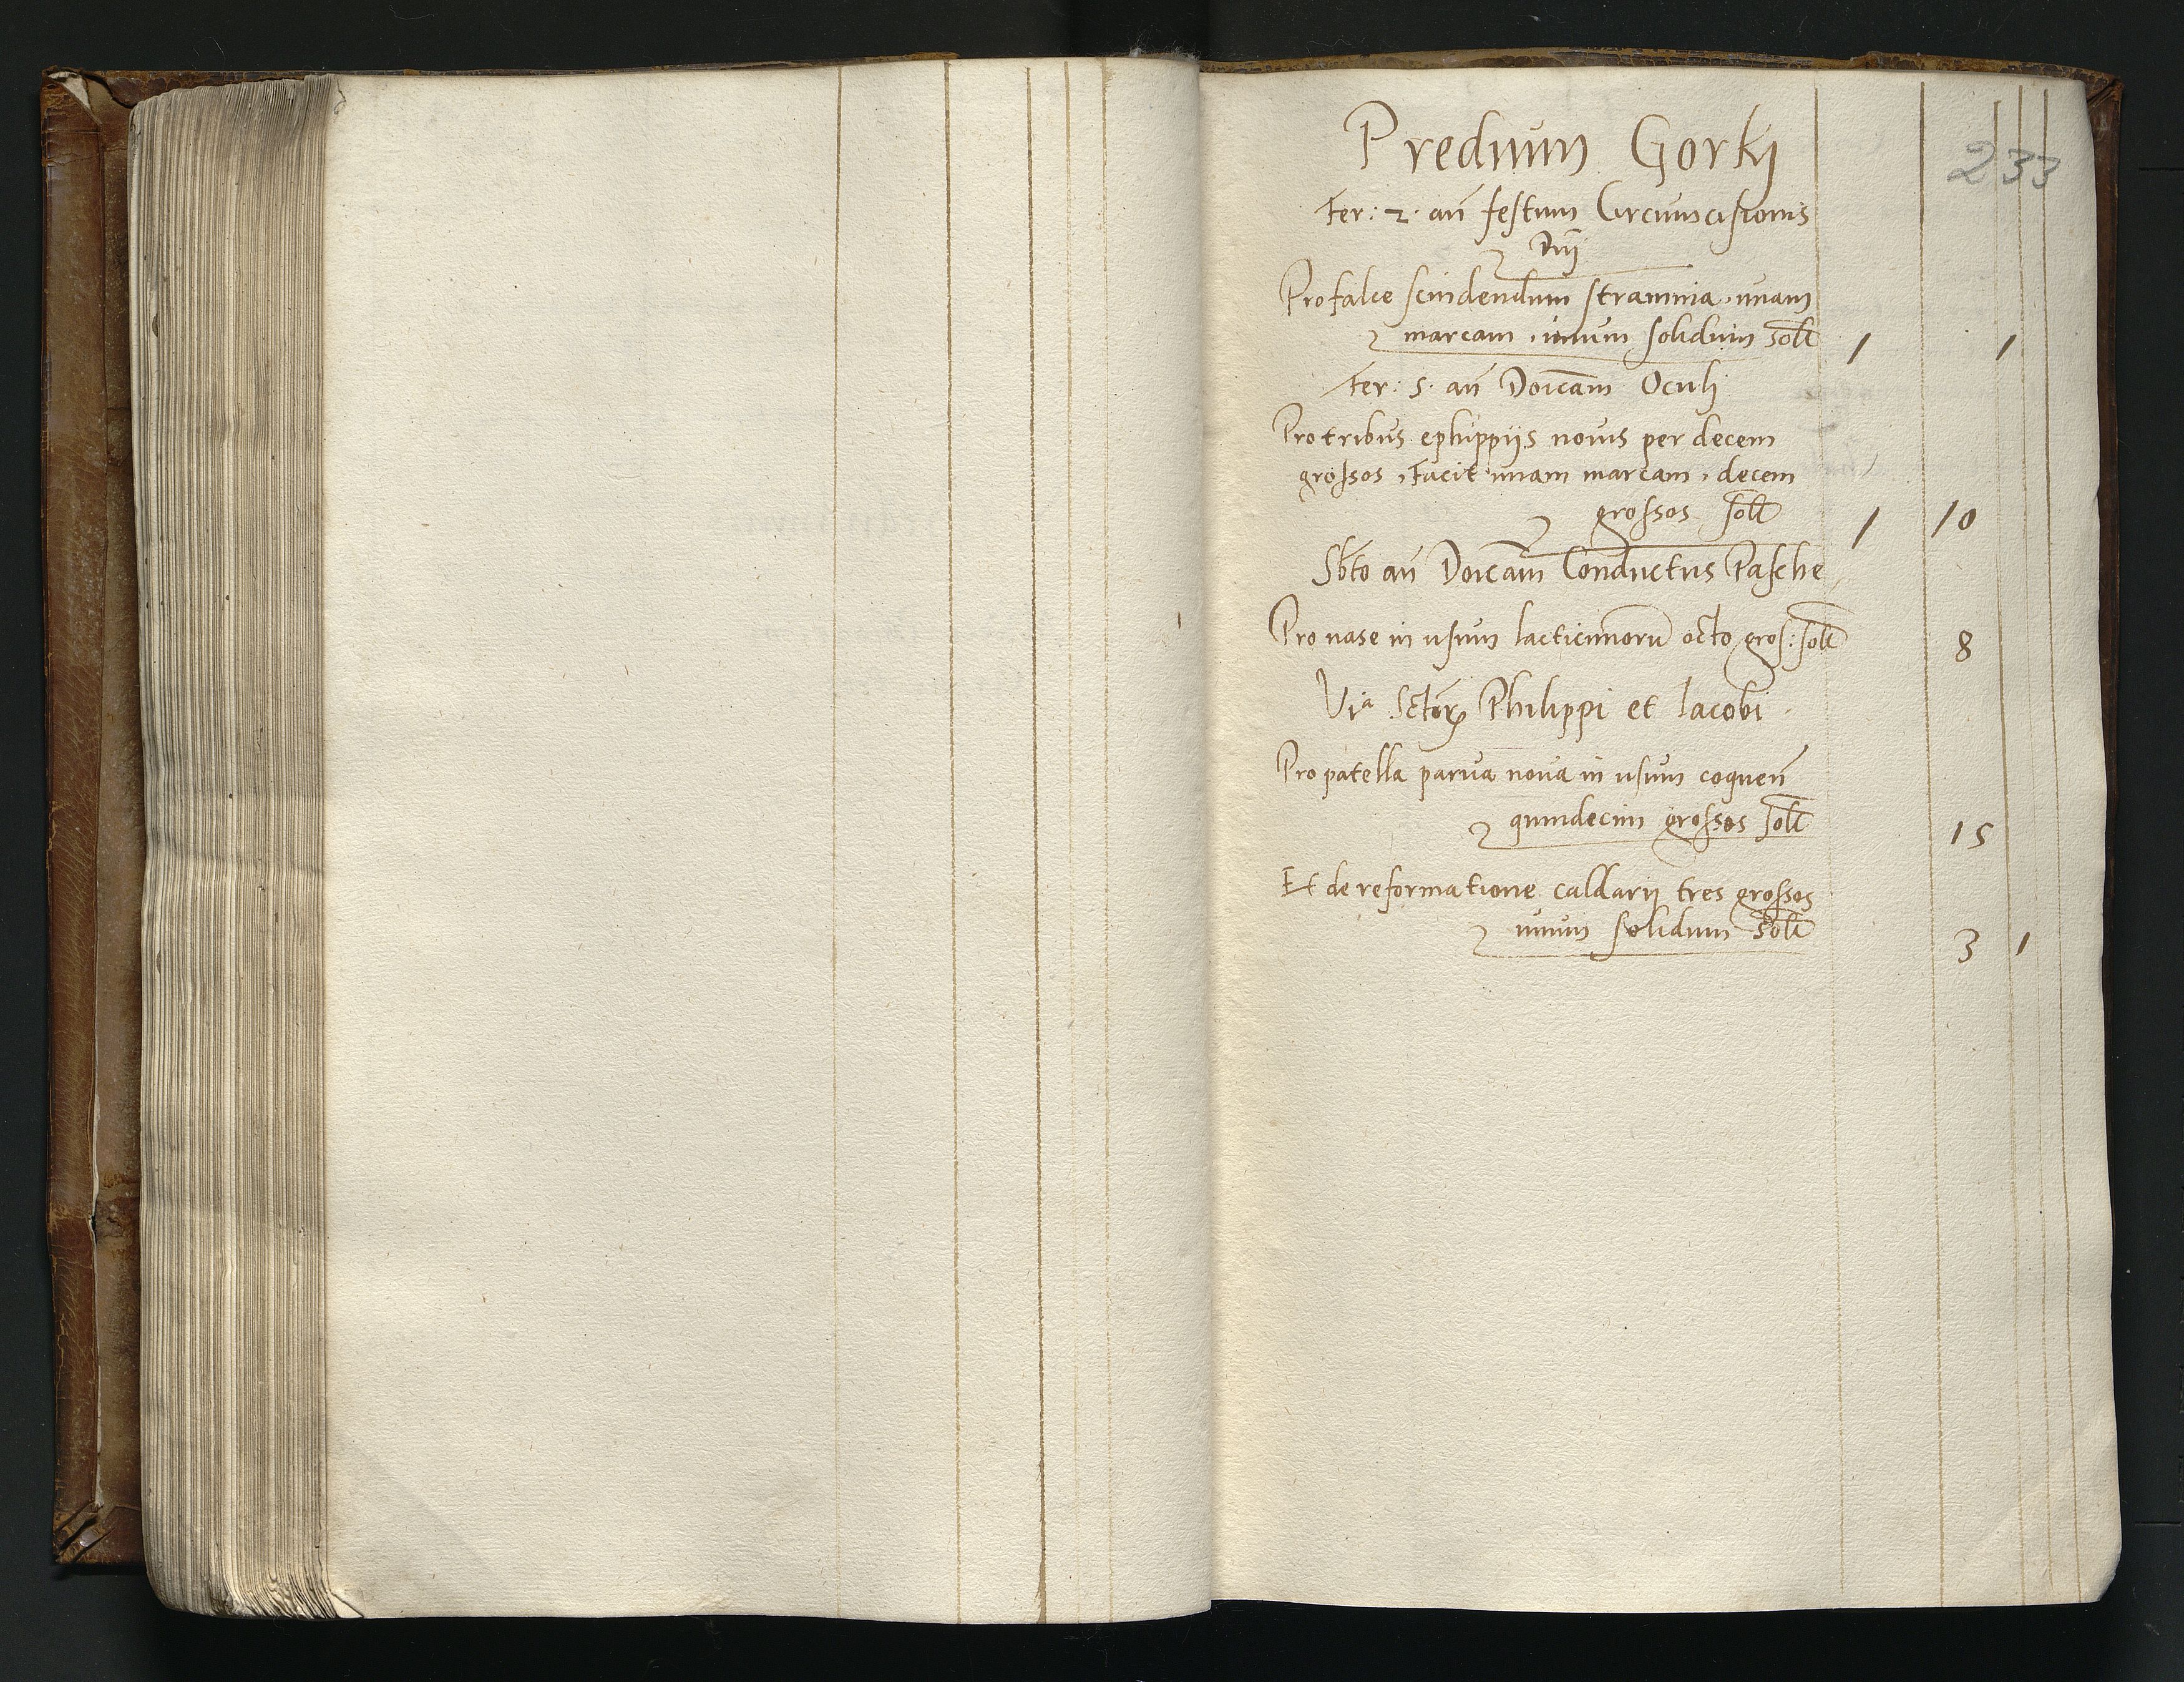 233
Predium Gorky
Fer: 2. an̄ festum Circumcisionis
Dnj
Pro falce scindendum straminia, unam
marcam, unum solidum solt 1 1
Fer: 5. an̄ Doicam Oculj
Pro tribus ephippijs novis per decem
grossos, Facit unam marcam, decem
grossos solt 1 10
Sbto an̄ Doicam Conductus Pasche
Pro vase in usum lacticiniorū octo gros: solt 8
Via Sctōr Philippi et Iacobi
Pro patella parva nova in usum coquen̄
quindecim grossos solt 15
Et de reformatione caldarij tres grossos
unum solidum solt 3 1